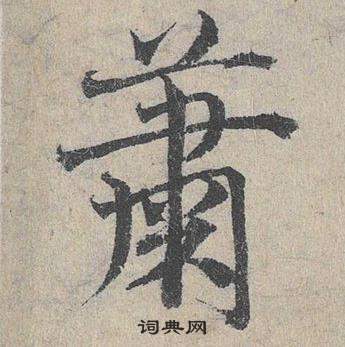 蕭
词典网